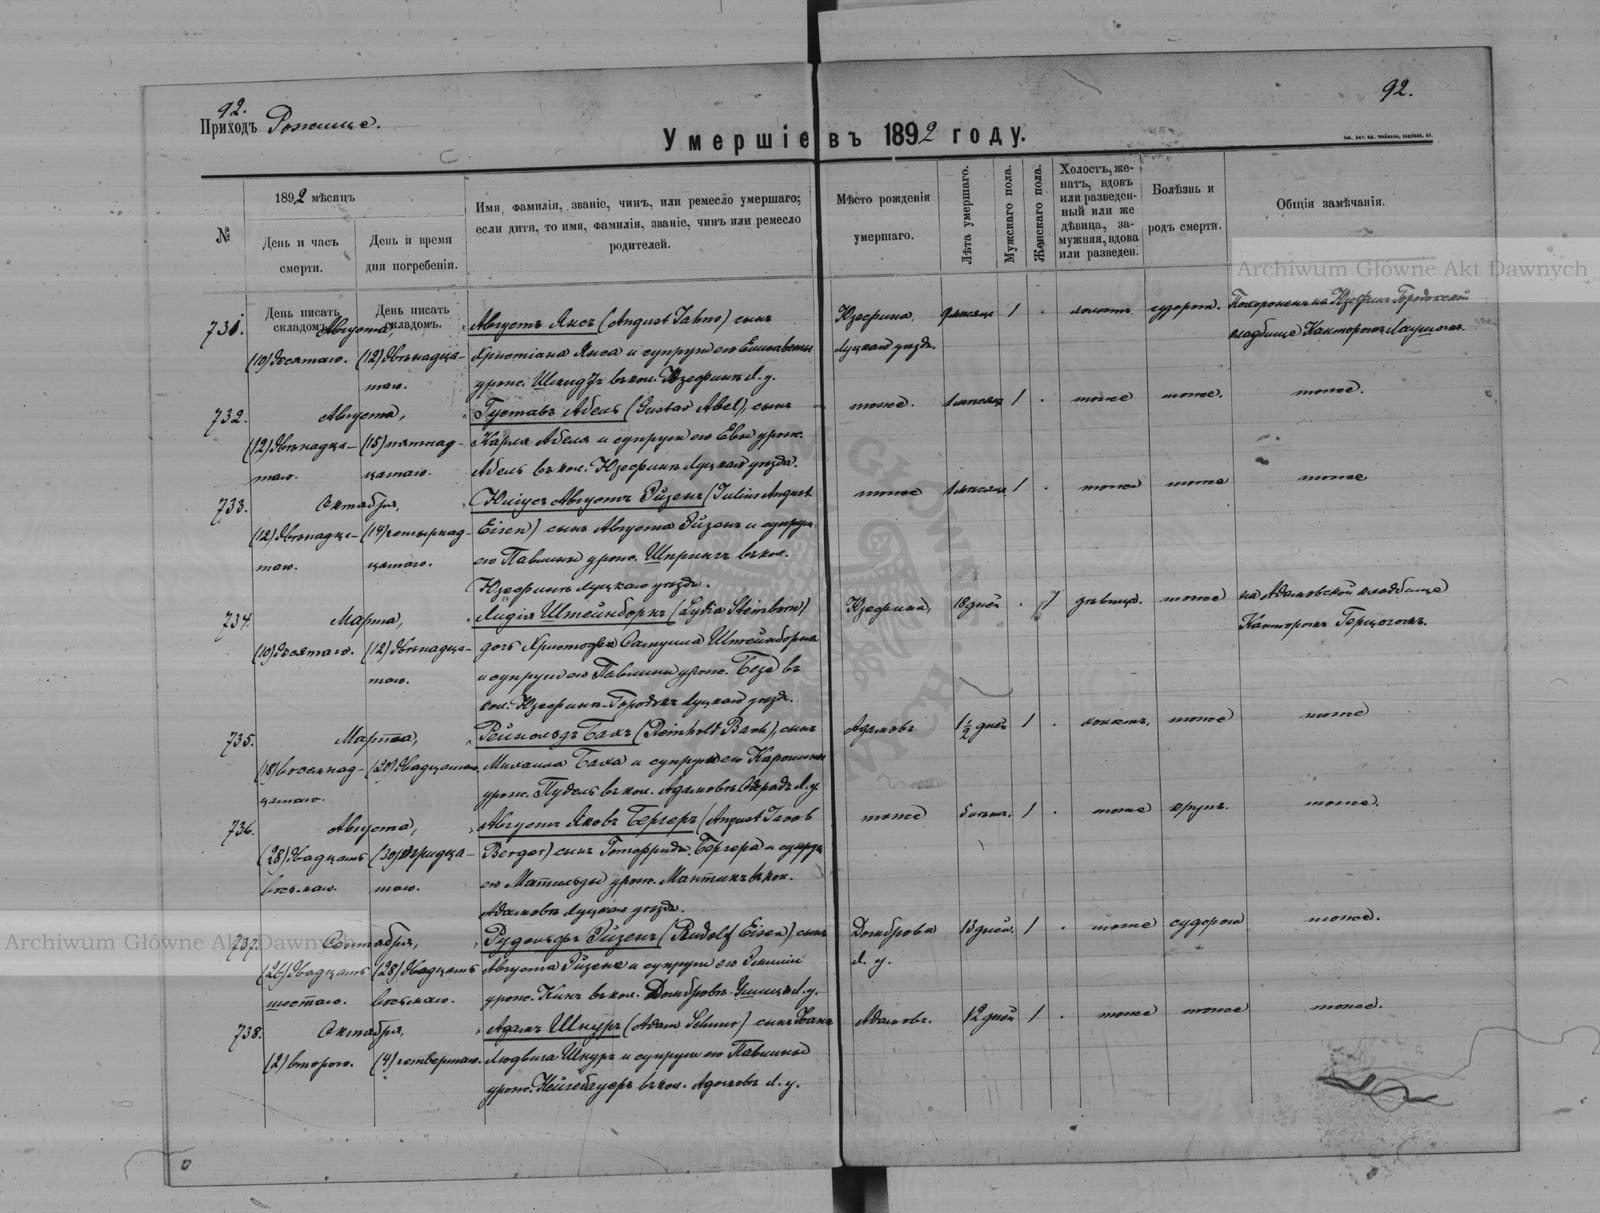 92.
92.
Приходъ Рожище.
Умершіе въ 1892 году.
№
1892 мѣсяцъ
День и часъ смерти.
День и время дня погребенія.
Имя, фамилія, званіе, чинъ, или ремесло умершаго;
если дитя, то имя, фамилія, званіе, чинъ или ремесло
родителей.
Мѣсто рожденія
умершаго.
Лѣта умершаго.
Мужскаго пола.
Женскаго пола.
Холостъ, же-
натъ, вдовъ
или разведен-
ный или же
дѣвица, за-
мужняя, вдова
или разведен.
Болѣзнь и
родъ смерти.
Общія замѣчанія.
Archiwum Główne Akt Dawnych
День писать складомъ.
День писать складомъ.
731. Августа, Августъ Янсъ (August Jahns) сынъ Юзефина, 1 . холостъ судорога. Похороненъ на Юзефин. Городокской
(10) десятаго. (12) двѣнадца- Христіана Янса и супруги его Елисаветы Луцкаго уѣзда. кладбищѣ Канторомъ
таго. урож. Шмидтъ въ кол. Юзефинѣ Л. у.
732. Августа, Густавъ Абель (Gustav Abel), сынъ тоже. 1 мѣсяцъ 1 . тоже тоже. тоже.
(12) двѣнадца- (15) пятнад- Карла Абеля и супруги его Евы урож.
таго. цатаго. Абель въ кол. Юзефинѣ Луцкаго уѣзда.
733. Октября, Юліусъ Августъ Эйзенъ (Julius August тоже 1 мѣсяцъ 1 . тоже тоже тоже
(12) двѣнадца- (14) четырнад- Eisen) сынъ Августа Эйзенъ и супруги
таго. цатаго. его Павлины урож. Шпрингъ въ кол.
Юзефинѣ Луцкаго уѣзда.
734. Марта, Лидія Штейнборнъ (Lydia Steinborn) Юзефина, 18 дней . 1 дѣвица. тоже на Адамовской кладбище
(10) десятаго. (12) двѣнадца- дочь Христофа Самуила Штейнборна Канторомъ Герцогомъ.
таго. и супруги его Павлины урож. Безе въ
кол. Юзефинѣ-Городокъ Луцкаго уѣзда.
735. Марта, Рейнольдъ Бахъ (Reinhold Bach), сынъ Адамовъ 1½ дней 1 . холостъ. тоже тоже
(18) восемнад- (20) двадцатаго. Михаила Баха и супруги его Каролины
цатаго. урож. Пудель въ кол. Адамовѣ Л. у.
736. Августа, Августъ Яковъ Бергеръ (August Jacob тоже 1 . тоже крупъ. тоже.
(28) двадцать (30) тридца- Berger) сынъ Готфрида Бергера и супруги
восьмаго. таго. его Матильды урож. Мантикъ въ кол.
Адамовѣ Луцкаго уѣзда.
737. Сентября, Рудольфъ Эйзенъ (Rudolf Eisen) сынъ Домброва 13 дней. 1 . тоже судорога тоже.
(26) двадцать (28) двадцать Августа Эйзена и супруги его Эмиліи Л. у.
шестаго. восьмаго. урож. Кинъ въ кол. Домбровѣ Л. у.
738. Октября, Адамъ Шнуръ (Adam Schnur) сынъ Адамовъ. 12 дней 1 . тоже тоже тоже.
(2) второго. (4) четвертаго. Людвига Шнуръ и супруги его Павлины
урож. Нейгебауеръ въ кол. Адамовѣ Л. у.
Archiwum Główne Akt Dawnych